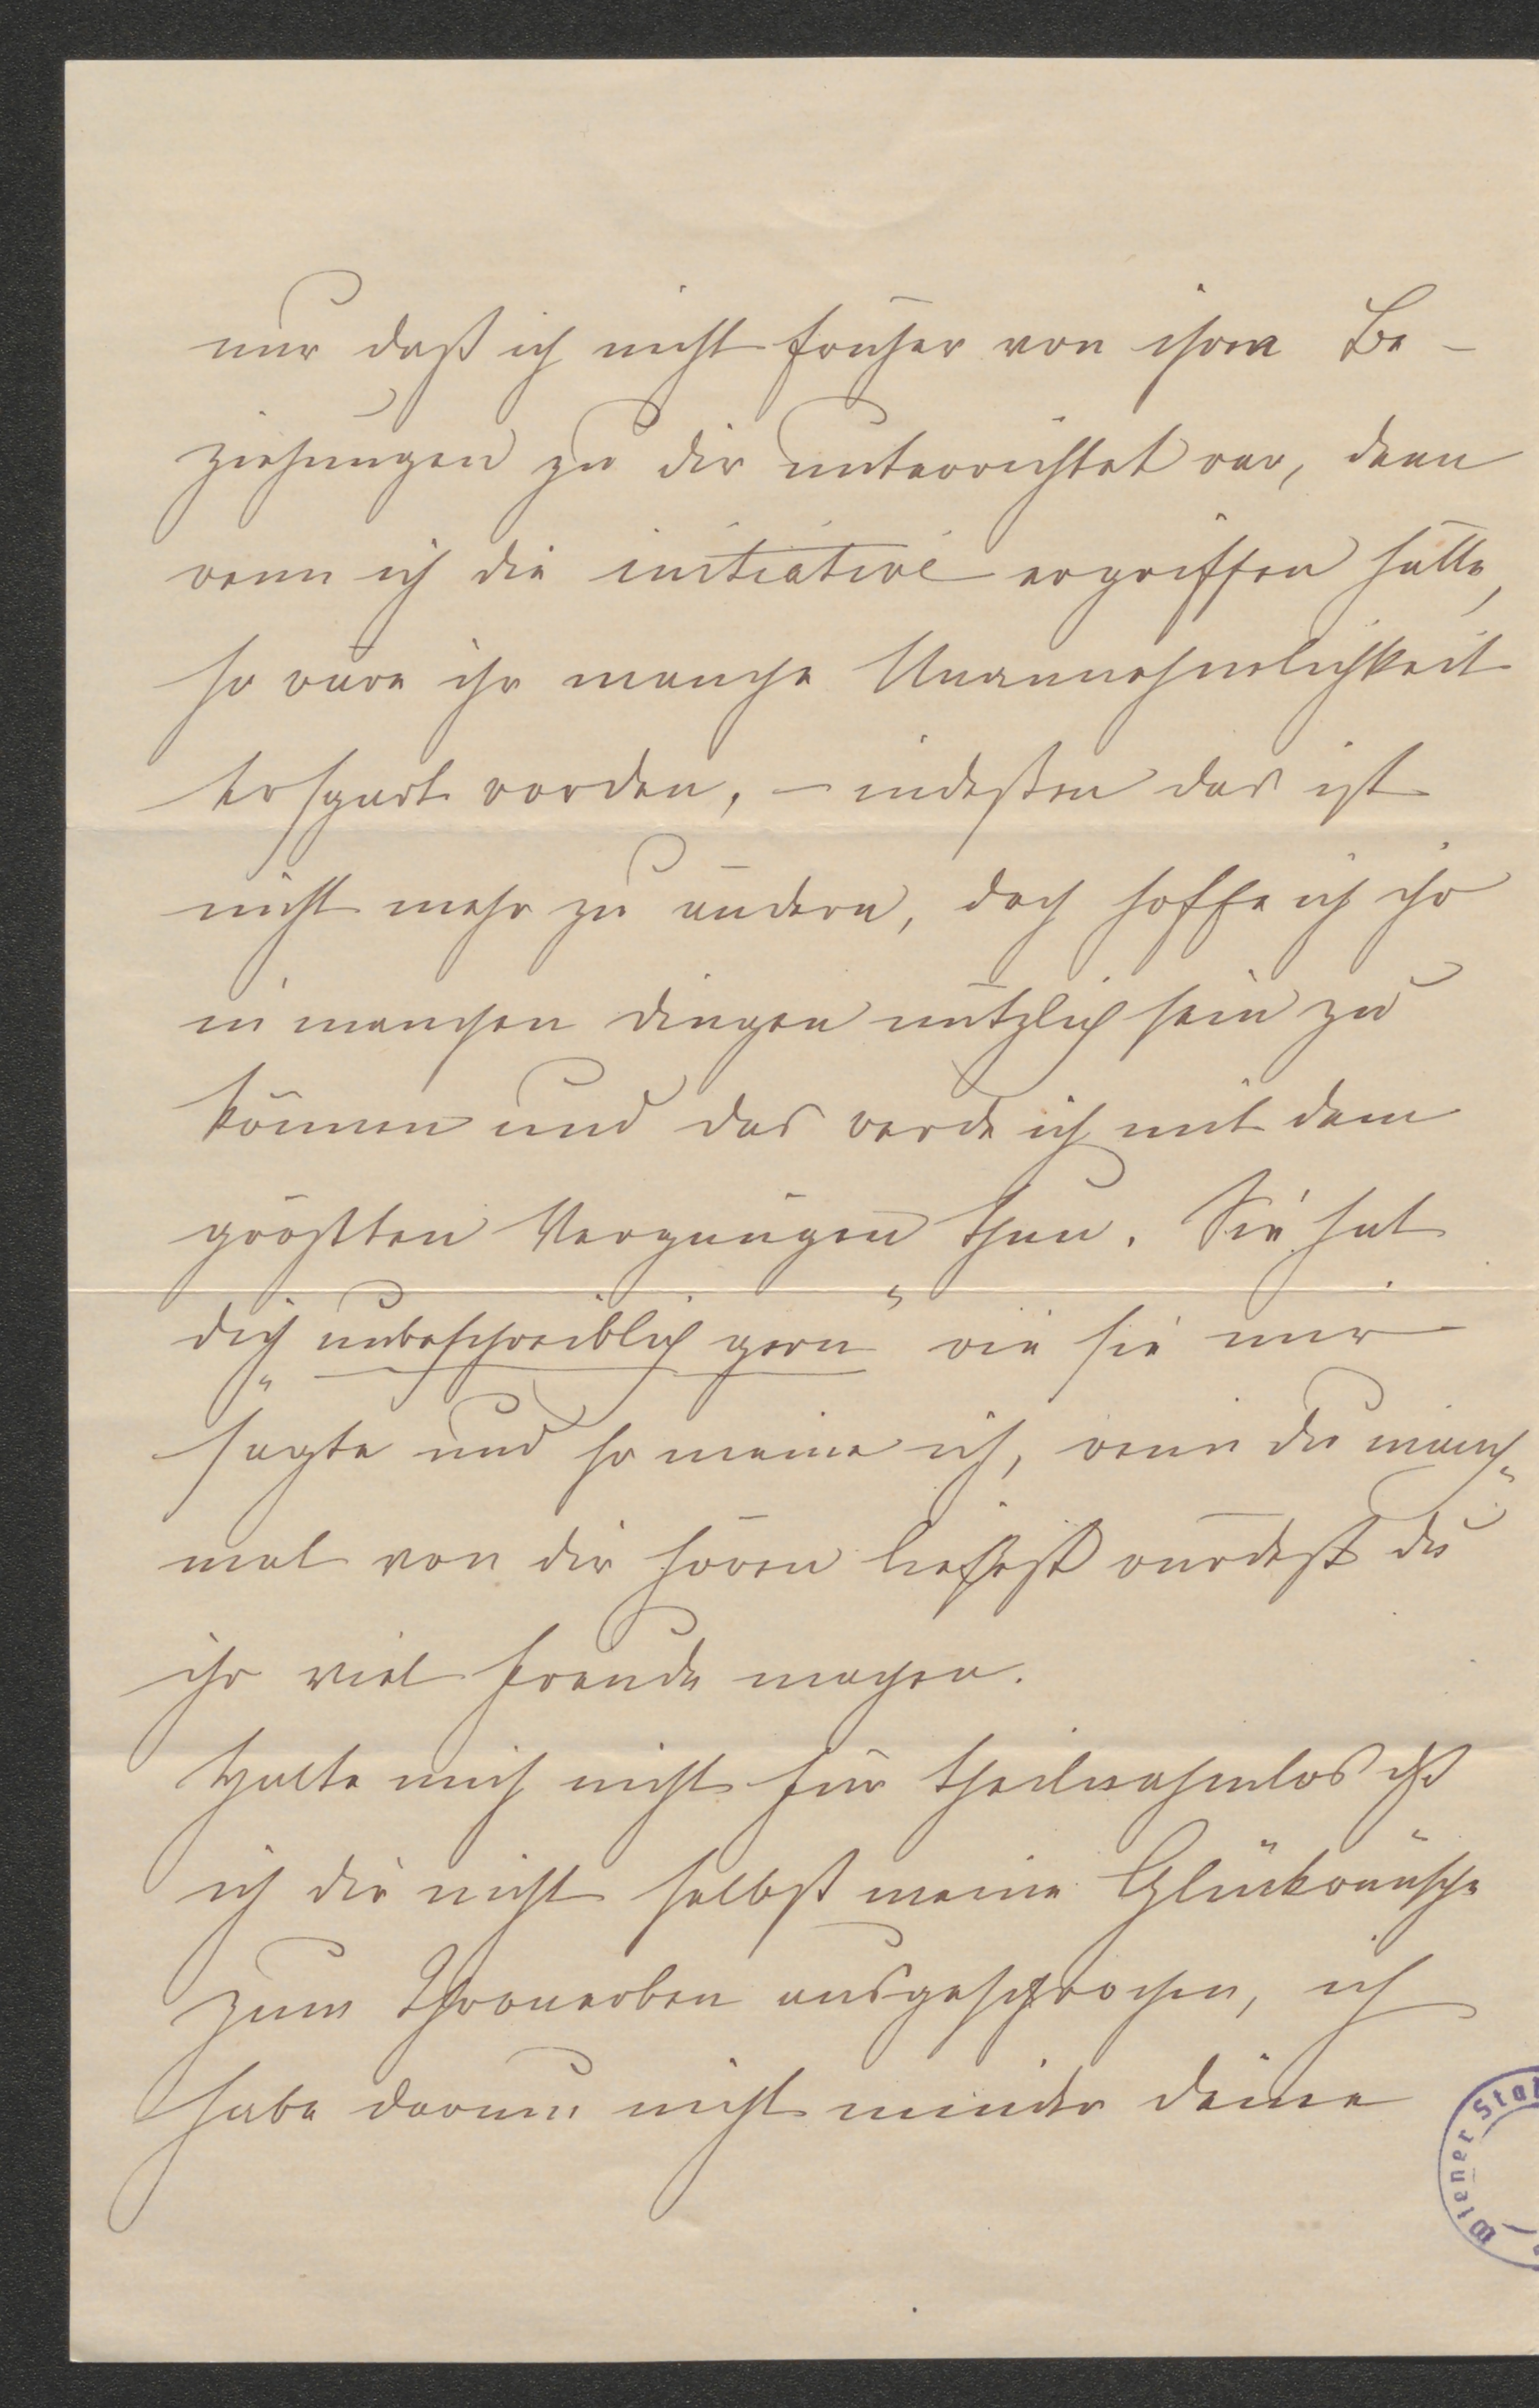 nur daß ich nicht früher von ihren Be-
ziehungen zu dir unterrichtet war, denn
wenn ich die initiative ergriffen hätte,
so wäre ihr manche Unannehmlichkeit
erspart worden, – indeßen das ist
nicht mehr zu ändern, doch hoffe ich ihr
in manchen dingen nützlich sein zu
können und das werde ich mit dem
größten Vergnügen thun. Sie hat
dich „unbeschreiblich gern“ wie sie mir
sagte und so meine ich, wenn du manch-
mal von dir hören ließest würdest du
ihr viel Freude machen.
Halte mich nicht für theilnahmlos
ich dir nicht selbst meine Glückwünsche
zum Thronerben ausgesprochen, ich
habe darum nicht minder deine
Wiener Sta